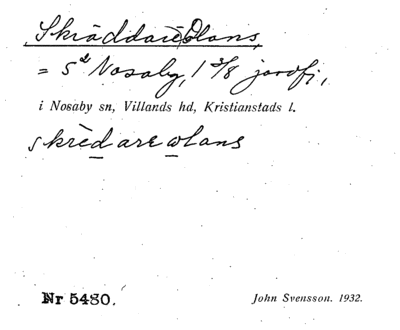 Skräddare Olans,
= 5² Nosaby, 1 3/8 jordfj,
i Nosaby sn, Villands hd, Kristianstads l.
skrèdare ωlans
Nr 5480.
John Svensson. 1932.